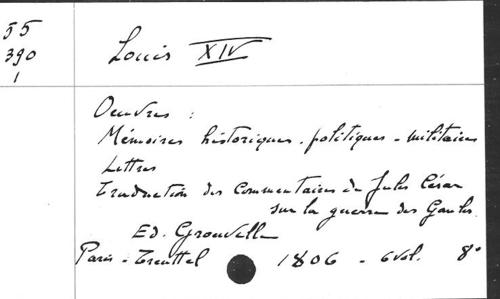 55
390
1
Louis XIV
Oeuvres :
Mémoires historiques, politiques - militaires
Lettres
Traduction des Commentaires de Jules César
sur la guerre des Gaules.
Ed. Grouvelle
Paris - Treuttel 1806 - 6 vol. 8°